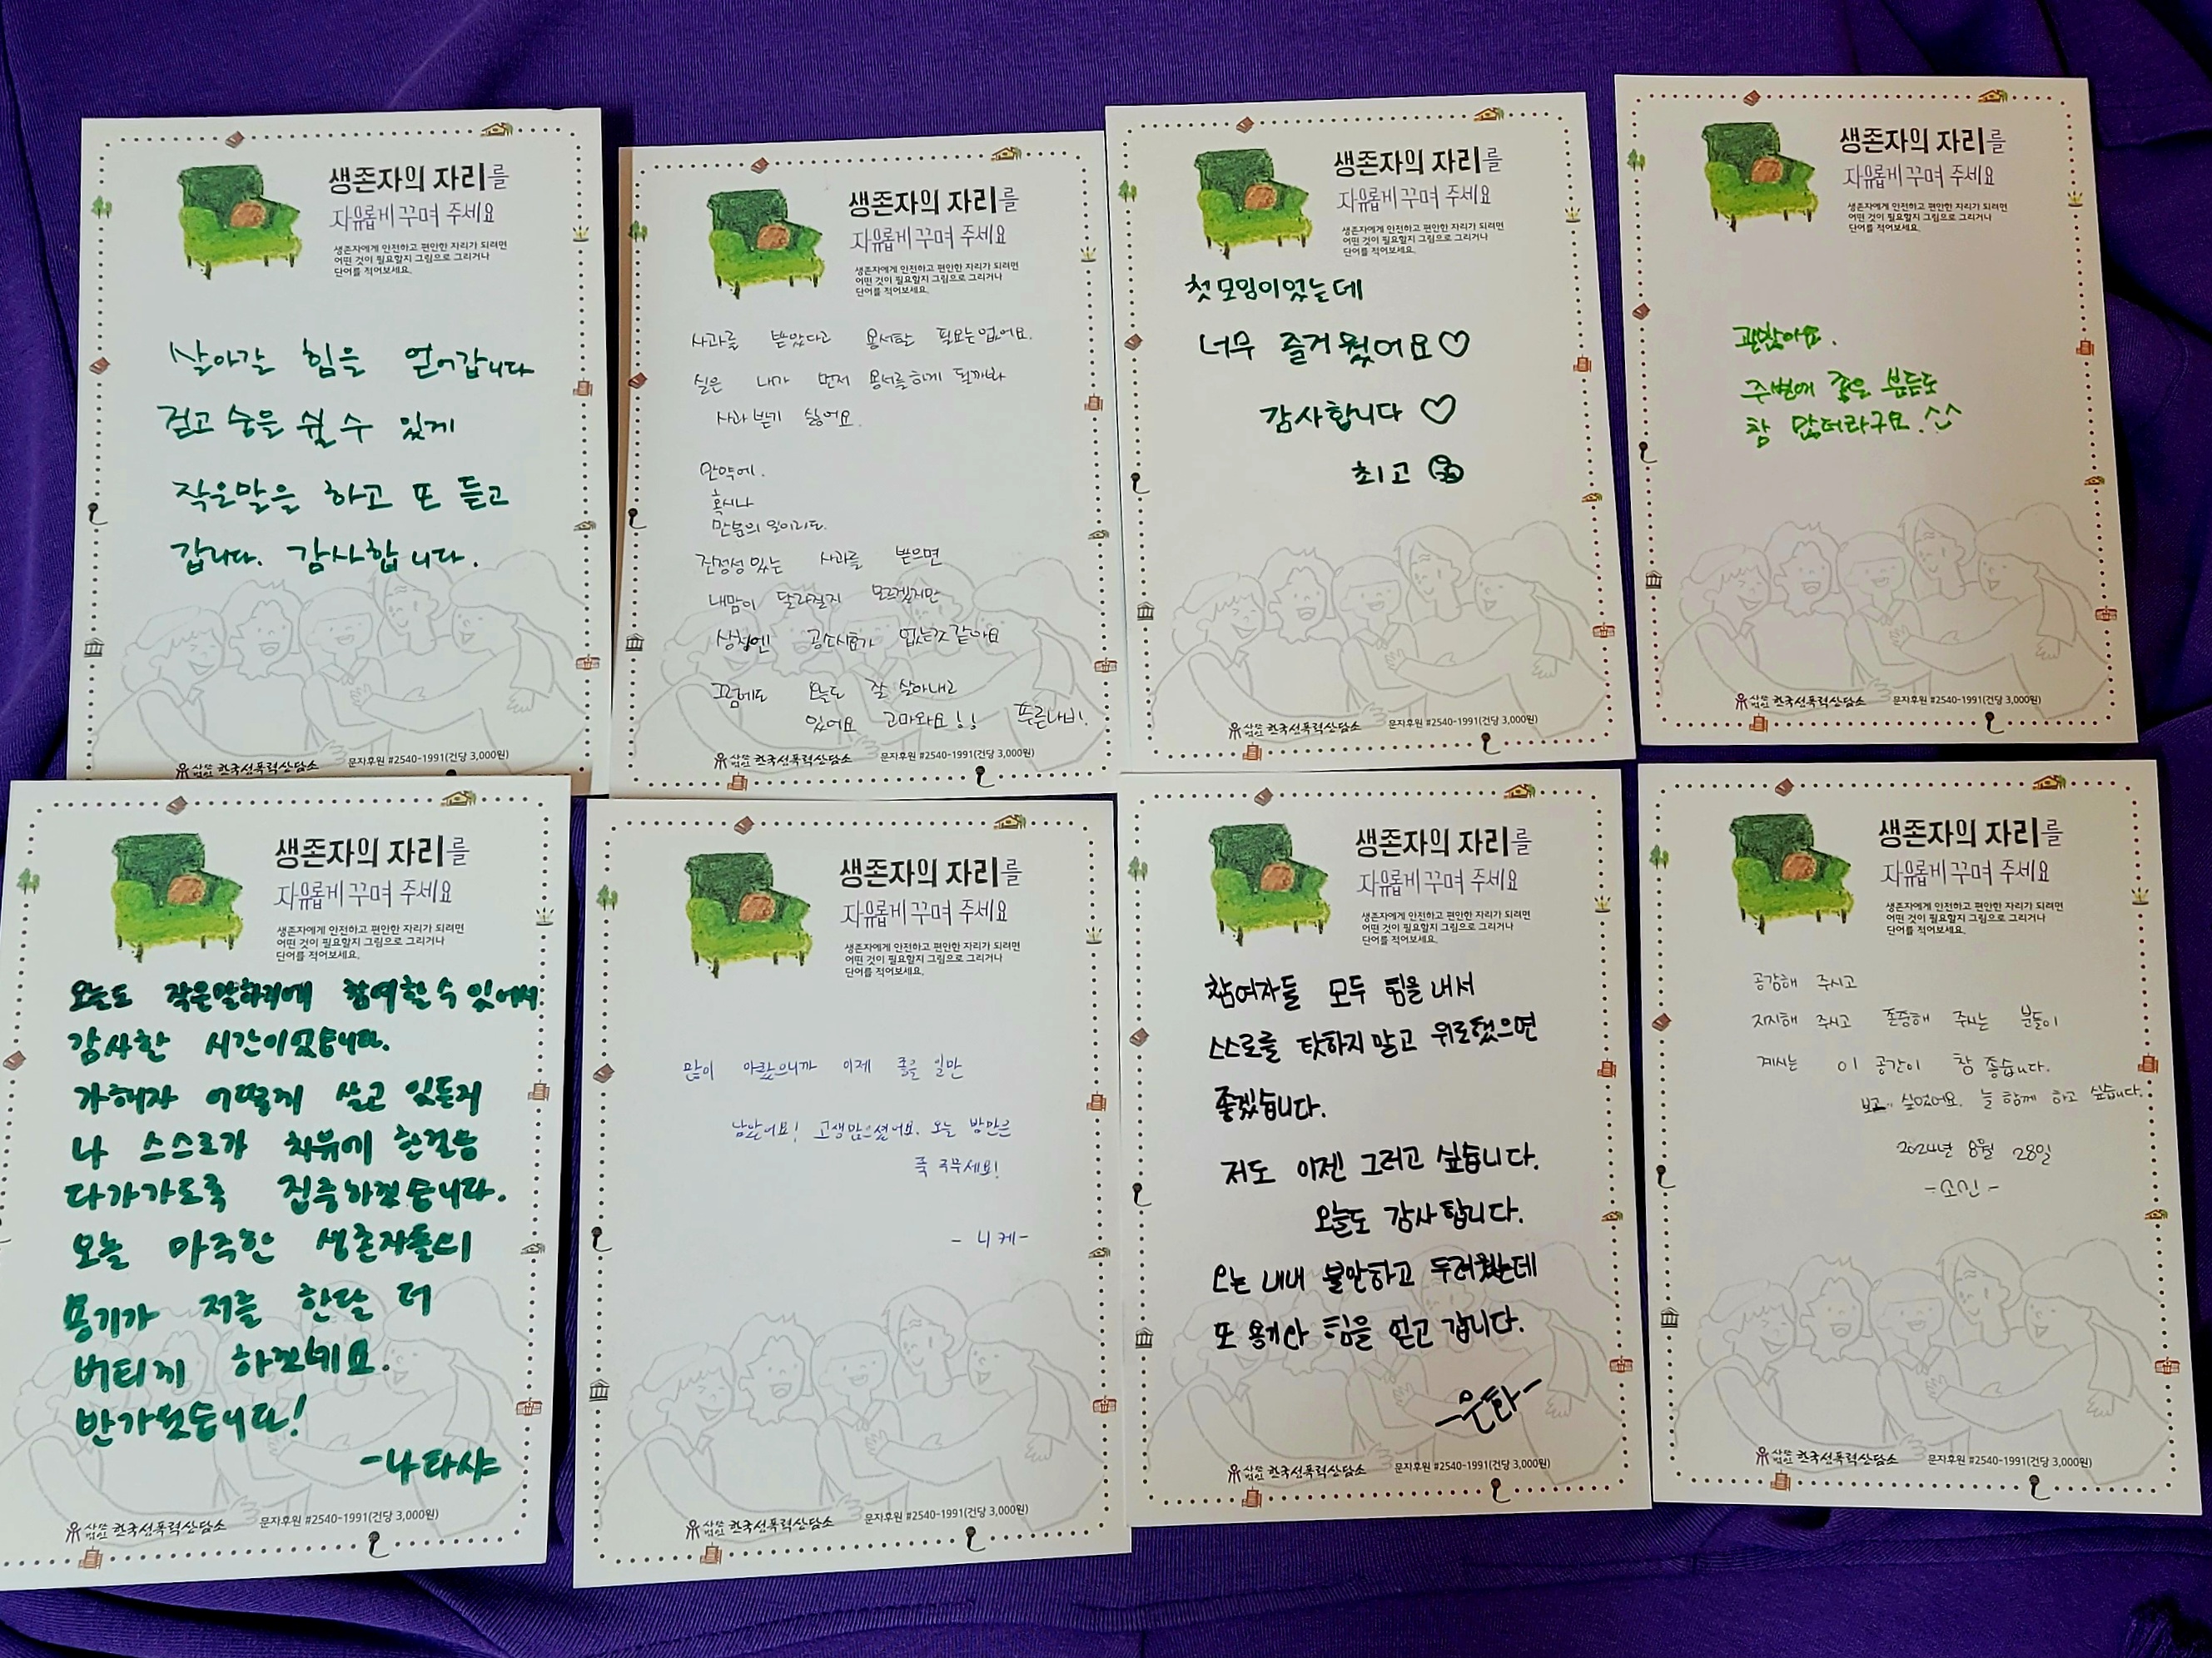 생존자의 자리를
자유롭게 꾸며 주세요
생존자에게 안전하고 편안한 자리가 되려면
어떤 것이 필요할지 그림으로 그리거나
단어를 적어보세요.
살아갈 힘을 얻어갑니다
걷고 숨을 쉴 수 있게
작은말을 하고 또 듣고
갑니다. 감사합니다.
한국성폭력상담소 문자후원 #2540-1991(건당 3,000원)
생존자의 자리를
자유롭게 꾸며 주세요
생존자에게 안전하고 편안한 자리가 되려면
어떤 것이 필요할지 그림으로 그리거나
단어를 적어보세요.
사과를 받았다고 용서할 필요는 없어요.
실은 내가 먼저 용서를 하게 될까봐
사과 받기 싫어요.
만약에.
혹시나
만분의 일이라도.
진정성 있는 사과를 받으면
내맘이 달라질지 모르겠지만
상처엔 공소시효가 없는것 같아요
그럼에도 오늘도 잘 살아내고
있어요 고마와요!! 푸른나비.
한국성폭력상담소 문자후원 #2540-1991(건당 3,000원)
생존자의 자리를
자유롭게 꾸며 주세요
생존자에게 안전하고 편안한 자리가 되려면
어떤 것이 필요할지 그림으로 그리거나
단어를 적어보세요.
첫모임이었는데
너무 즐거웠어요♡
감사합니다 ♡
최고
한국성폭력상담소 문자후원 #2540-1991(건당 3,000원)
생존자의 자리를
자유롭게 꾸며 주세요
생존자에게 안전하고 편안한 자리가 되려면
어떤 것이 필요할지 그림으로 그리거나
단어를 적어보세요.
괜찮아요.
주변에 좋은 분들도
참 많더라구요.^^
한국성폭력상담소 문자후원 #2540-1991(건당 3,000원)
생존자의 자리를
자유롭게 꾸며 주세요
생존자에게 안전하고 편안한 자리가 되려면
어떤 것이 필요할지 그림으로 그리거나
단어를 적어보세요.
오늘도 작은말하기에 참여할 수 있어서
감사한 시간이었습니다.
가해자 어떻게 살고 있든지
나 스스로가 치유에 한걸음
다가가도록 집중하겠습니다.
오늘 마주한 생존자들의
용기가 저를 한달 더
버티게 하겠네요.
반가웠습니다!
-나타샤
한국성폭력상담소 문자후원 #2540-1991(건당 3,000원)
생존자의 자리를
자유롭게 꾸며 주세요
생존자에게 안전하고 편안한 자리가 되려면
어떤 것이 필요할지 그림으로 그리거나
단어를 적어보세요.
많이 아팠으니까 이제 좋을 일만
남았어요! 고생많으셨어요. 오늘 밤만은
푹 주무세요!
- 니케-
한국성폭력상담소 문자후원 #2540-1991(건당 3,000원)
생존자의 자리를
자유롭게 꾸며 주세요
생존자에게 안전하고 편안한 자리가 되려면
어떤 것이 필요할지 그림으로 그리거나
단어를 적어보세요.
참여자들 모두 힘을 내서
스스로를 탓하지 말고 위로했으면
좋겠습니다.
저도 이젠 그러고 싶습니다.
오늘도 감사합니다.
오는 내내 불안하고 두려웠는데
또 용기와 힘을 얻고 갑니다.
한국성폭력상담소 문자후원 #2540-1991(건당 3,000원)
생존자의 자리를
자유롭게 꾸며 주세요
생존자에게 안전하고 편안한 자리가 되려면
어떤 것이 필요할지 그림으로 그리거나
단어를 적어보세요.
공감해 주시고
지지해 주시고 존중해 주시는 분들이
계시는 이 공간이 참 좋습니다.
싶었어요. 늘 함께 하고 싶습니다.
2024년 8월 28일
한국성폭력상담소 문자후원 #2540-1991(건당 3,000원)